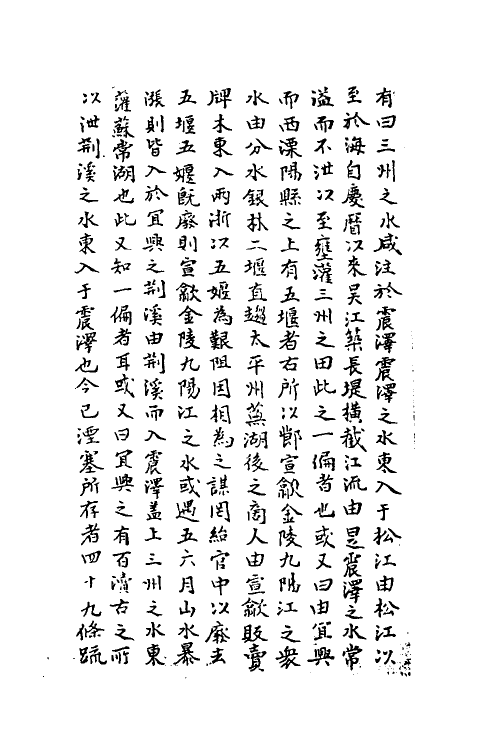 有曰三州之水咸注於震澤震澤之水東入于松江由松江以
至於海自慶曆以來吳江築長堤橫截江流由是震澤之水常
溢而不泄以至壅灌三州之田此之一偏者也或又曰由宜興
而西溧陽縣之上有五堰者古所以鄣宣歙金陵九陽江之衆
水由分水銀林二堰直趨太平州蕪湖後之商人由宣歙販賣
牌木東入兩浙以五堰為艱阻因相為之謀罔紿官中以廢去
五堰五堰旣廢則宣歙金陵九陽江之水或遇五六月山水暴
漲則皆入於宜興之荆溪由荆溪而入震澤盖上三州之水東
灌蘇常湖也此又知一偏者耳或又曰宜興之有百瀆古之所
以泄荆溪之水東入于震澤也今已湮塞所存者四十九條疏